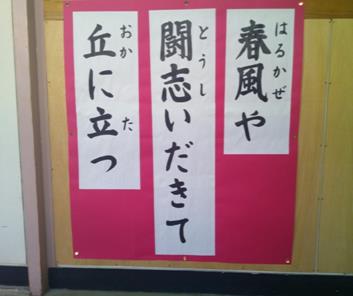 春風や
はるかぜ
闘志いだきて
とうし
丘に立つ
おか
た